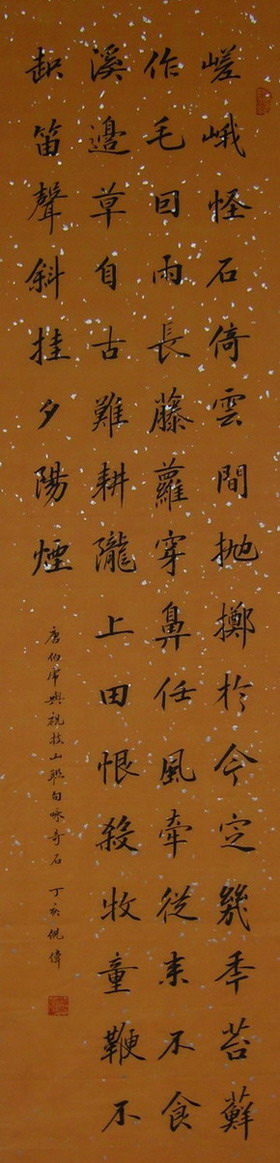 嵯峨怪石倚雲間拋擲於今定幾年苔蘚
作毛因雨長藤蘿穿鼻任風牽從來不食
溪邊草自古難耕隴上田恨殺牧童鞭不
起笛聲斜挂夕陽煙
唐伯虎與祝枝山聯句咏奇石 丁亥 倪偉